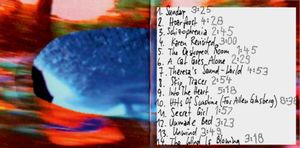 1. Sunday 3:25
2. Hoarfrost 4:28
3. Schizophrenia 2:45
4. Karen Revisited 3:00
5. The Destroyed Room 1:45
6. A Cat Goes Alone 2:29
7. Theresa's Sound-World 4:53
8. Skip Tracer 2:54
9. Into The Heart 5:18
10. Hits Of Sunshine (For Allen Ginsberg) 8:38
11. Secret Girl 1:57
12. Unmade Bed 3:23
13. Unwind 3:49
14. The Wind Is Blowing 3:18